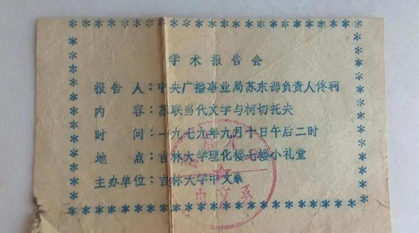 学术报告会
报告人：中央广播事业局苏东部负责人佟轲
内容：苏联当代文学与柯切托夫
时间：一九七九年九月十日午后二时
地点：吉林大学理化楼七楼小礼堂
主办单位：吉林大学中文系
中文系